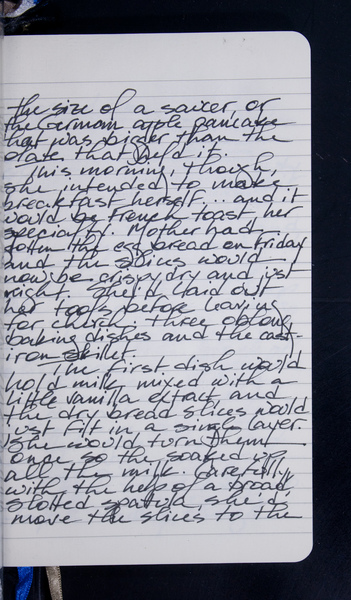 the size of a saucer, or
the German apple pancake
that was bigger than the
plate that held it.
This morning, though,
she intended to make
breakfast herself... and it
would be french toast, her
specialty. Mother had
gotten the egg bread on Friday
and the slices would
now be crispy dry and just
right. She'd laid out
her tools before leaving
for church: three oblong
baking dishes and the cast-
iron skillet.
The first dish would
hold milk mixed with a
little vanilla extract and
the dry bread slices would
just fit in a single layer.
She would turn them
once so they soaked up
all the milk. Carefully,
with the help of a broad
slotted spatula, she'd
move the slices to the